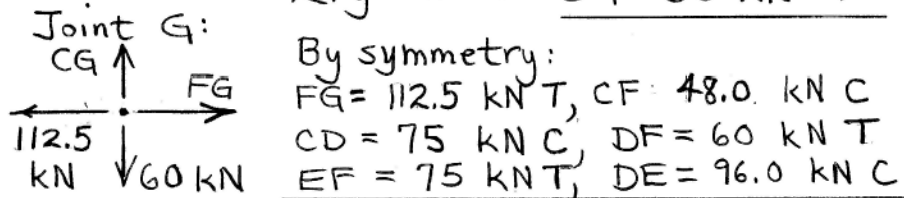 Joint G:
CG
FG
112.5
kN
60 kN
By symmetry:
FG = 112.5 kN T, CF: 48.0 kN C
CD = 75 kN C, DF = 60 kN T
EF = 75 kN T, DE = 96.0 kN C